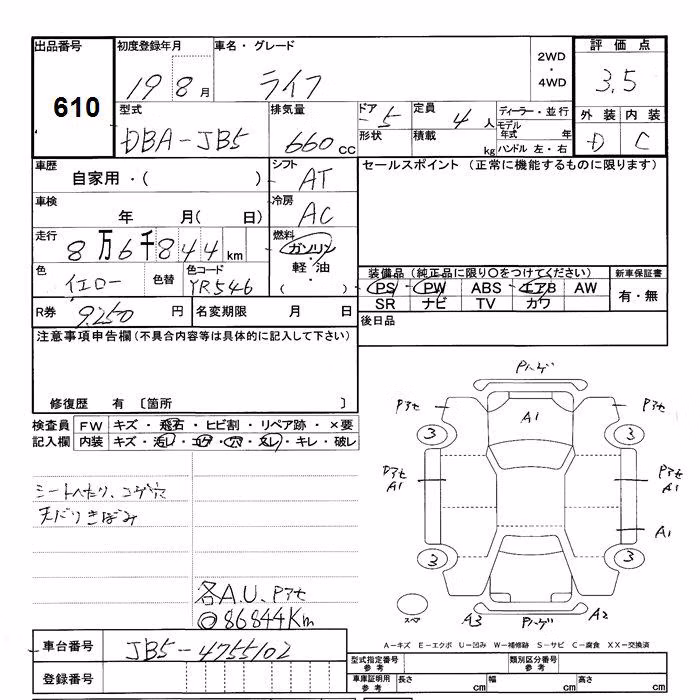 出品番号 初度登録年月 車名・グレード 2WD・4WD 評価点
610 19 8月 ライフ 3.5
型式 排気量 ドア 5 定員 4人 ディーラー・並行 外装 内装
DBA-JB5 660cc 形状 積載 kg モデル年式 年 ハンドル 左・右 D C
車歴 自家用・( ) シフト AT セールスポイント (正常に機能するものに限ります)
車検 年 月( 日) 冷房 AC
走行 8万6千844km 燃料 ガソリン・軽油 ( )
色 イエロー 色替 色コード YR546 装備品 (純正品に限り○をつけてください) 新車保証書
PS・PW ABS エアB AW 有・無
SR ナビ TV カワ
R券 9,250円 名変期限 月 日 後日品
注意事項申告欄(不具合内容等は具体的に記入して下さい)
修復歴 有 〔箇所 〕
検査員記入欄 FW キズ・飛石・ヒビ割・リペア跡・×要
内装 キズ・汚レ・コゲ・穴・スレ・キレ・破レ
シートへたり、コゲ穴
天だりきばみ
各A.U、Pアセ
◎86844Km
Pハゲ
Pアセ A1 Pアセ
3 3
Pアセ A1 Pアセ A1
A1
3 3
スペア A3 Pハゲ A2
A-キズ E-エクボ U-凹み W-補修跡 S-サビ C-腐食 XX-交換済
車台番号 JB5-4755102
型式指定番号 参考 類別区分番号 参考
登録番号 車庫証明用 参考 長さ cm 幅 cm 高さ cm